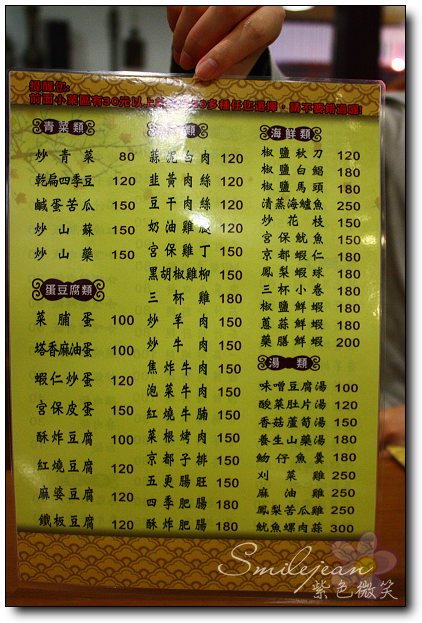 前面小菜區有30元以上
青菜類
炒青菜 80
乾扁四季豆 120
鹹蛋苦瓜 150
炒山蘇 150
炒山藥 150
蛋豆腐類
菜脯蛋 100
塔香麻油蛋 100
蝦仁炒蛋 120
宮保皮蛋 150
酥炸豆腐 100
紅燒豆腐 120
麻婆豆腐 120
鐵板豆腐 120
蒜泥白肉 120
韭黃肉絲 120
豆干肉絲 120
奶油雞腿 120
宮保雞丁 150
黑胡椒雞柳 150
三杯雞 180
炒羊肉 150
炒牛肉 150
焦炸牛肉 150
泡菜牛肉 150
紅燒牛腩 150
菜根烤肉 150
京都子排 150
五更腸旺 150
四季肥腸 180
酥炸肥腸 180
海鮮類
椒鹽秋刀 120
椒鹽白鯧 180
椒鹽馬頭 180
清蒸海鱸魚 250
炒花枝 150
宮保魷魚 150
京都蝦仁 180
鳳梨蝦球 180
三杯小卷 180
椒鹽鮮蝦 180
蔥蒜鮮蝦 180
藥膳鮮蝦 200
湯類
味噌豆腐湯 100
酸菜肚片湯 150
香菇蘆筍湯 150
養生山藥湯 180
魩仔魚羹 180
刈菜雞 250
麻油雞 250
鳳梨苦瓜雞 250
魷魚螺肉蒜 300
Smilejean
紫色微笑